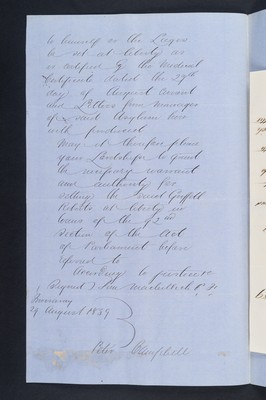 to himself or the Lieges
be set at liberty as
is certified by the Medical
Certificate dated the 29th
day of August current
and Letter from manager
of said Asylum here
with produced
May it therefore please
your Lordship to grant
the necessary warrant
and authority for
setting the said
at liberty in
terms of the 92nd
Section of the Act
of Parliament before
referred to
According to justice &c
(Signed)
29 August 1859
Peter Campbell